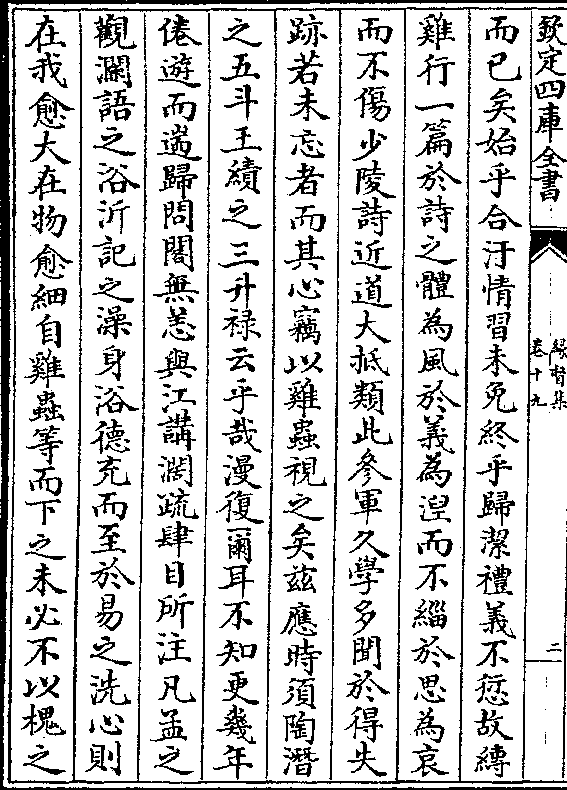 欽定四庫全書
緣督集
卷十九
二
而已矣始乎合汙情習未免終乎歸潔禮義不愆故縛
雞行一篇於詩之體為風於義為涅而不緇於思為哀
而不傷少陵詩近道大抵類此參軍久學多聞於得失
跡若未忘者而其心竊以雞蟲視之矣茲應時須陶潛
之五斗王績之三升祿云乎哉漫復爾耳不知更幾年
倦遊而遄歸問閤無恙與江講濶疏肆目所注凡孟之
觀瀾語之浴沂記之澡身浴德充而至於易之洗心則
在我愈大在物愈細自雞蟲等而下之未必不以槐之